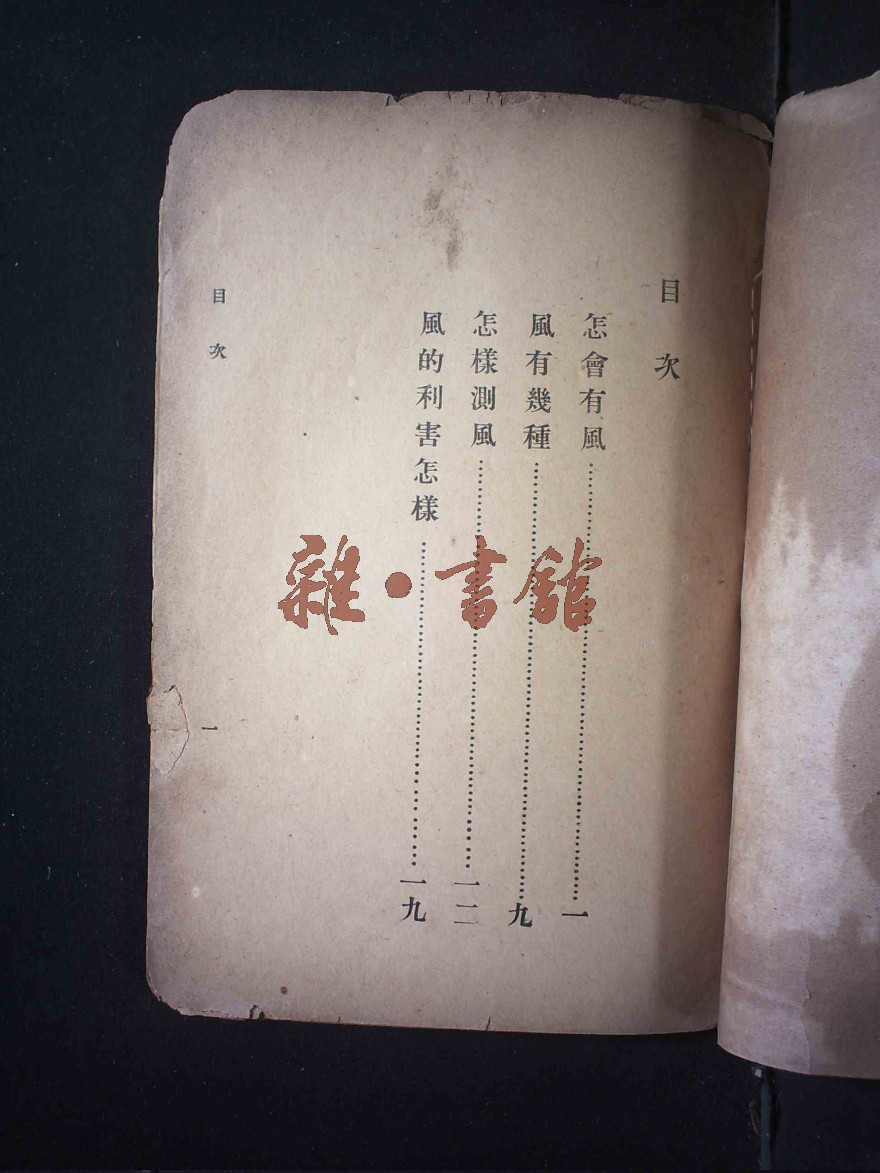 目次
怎會有風……一
風有幾種……九
怎樣測風……一二
風的利害怎樣……一九
目次
一
雜·書館